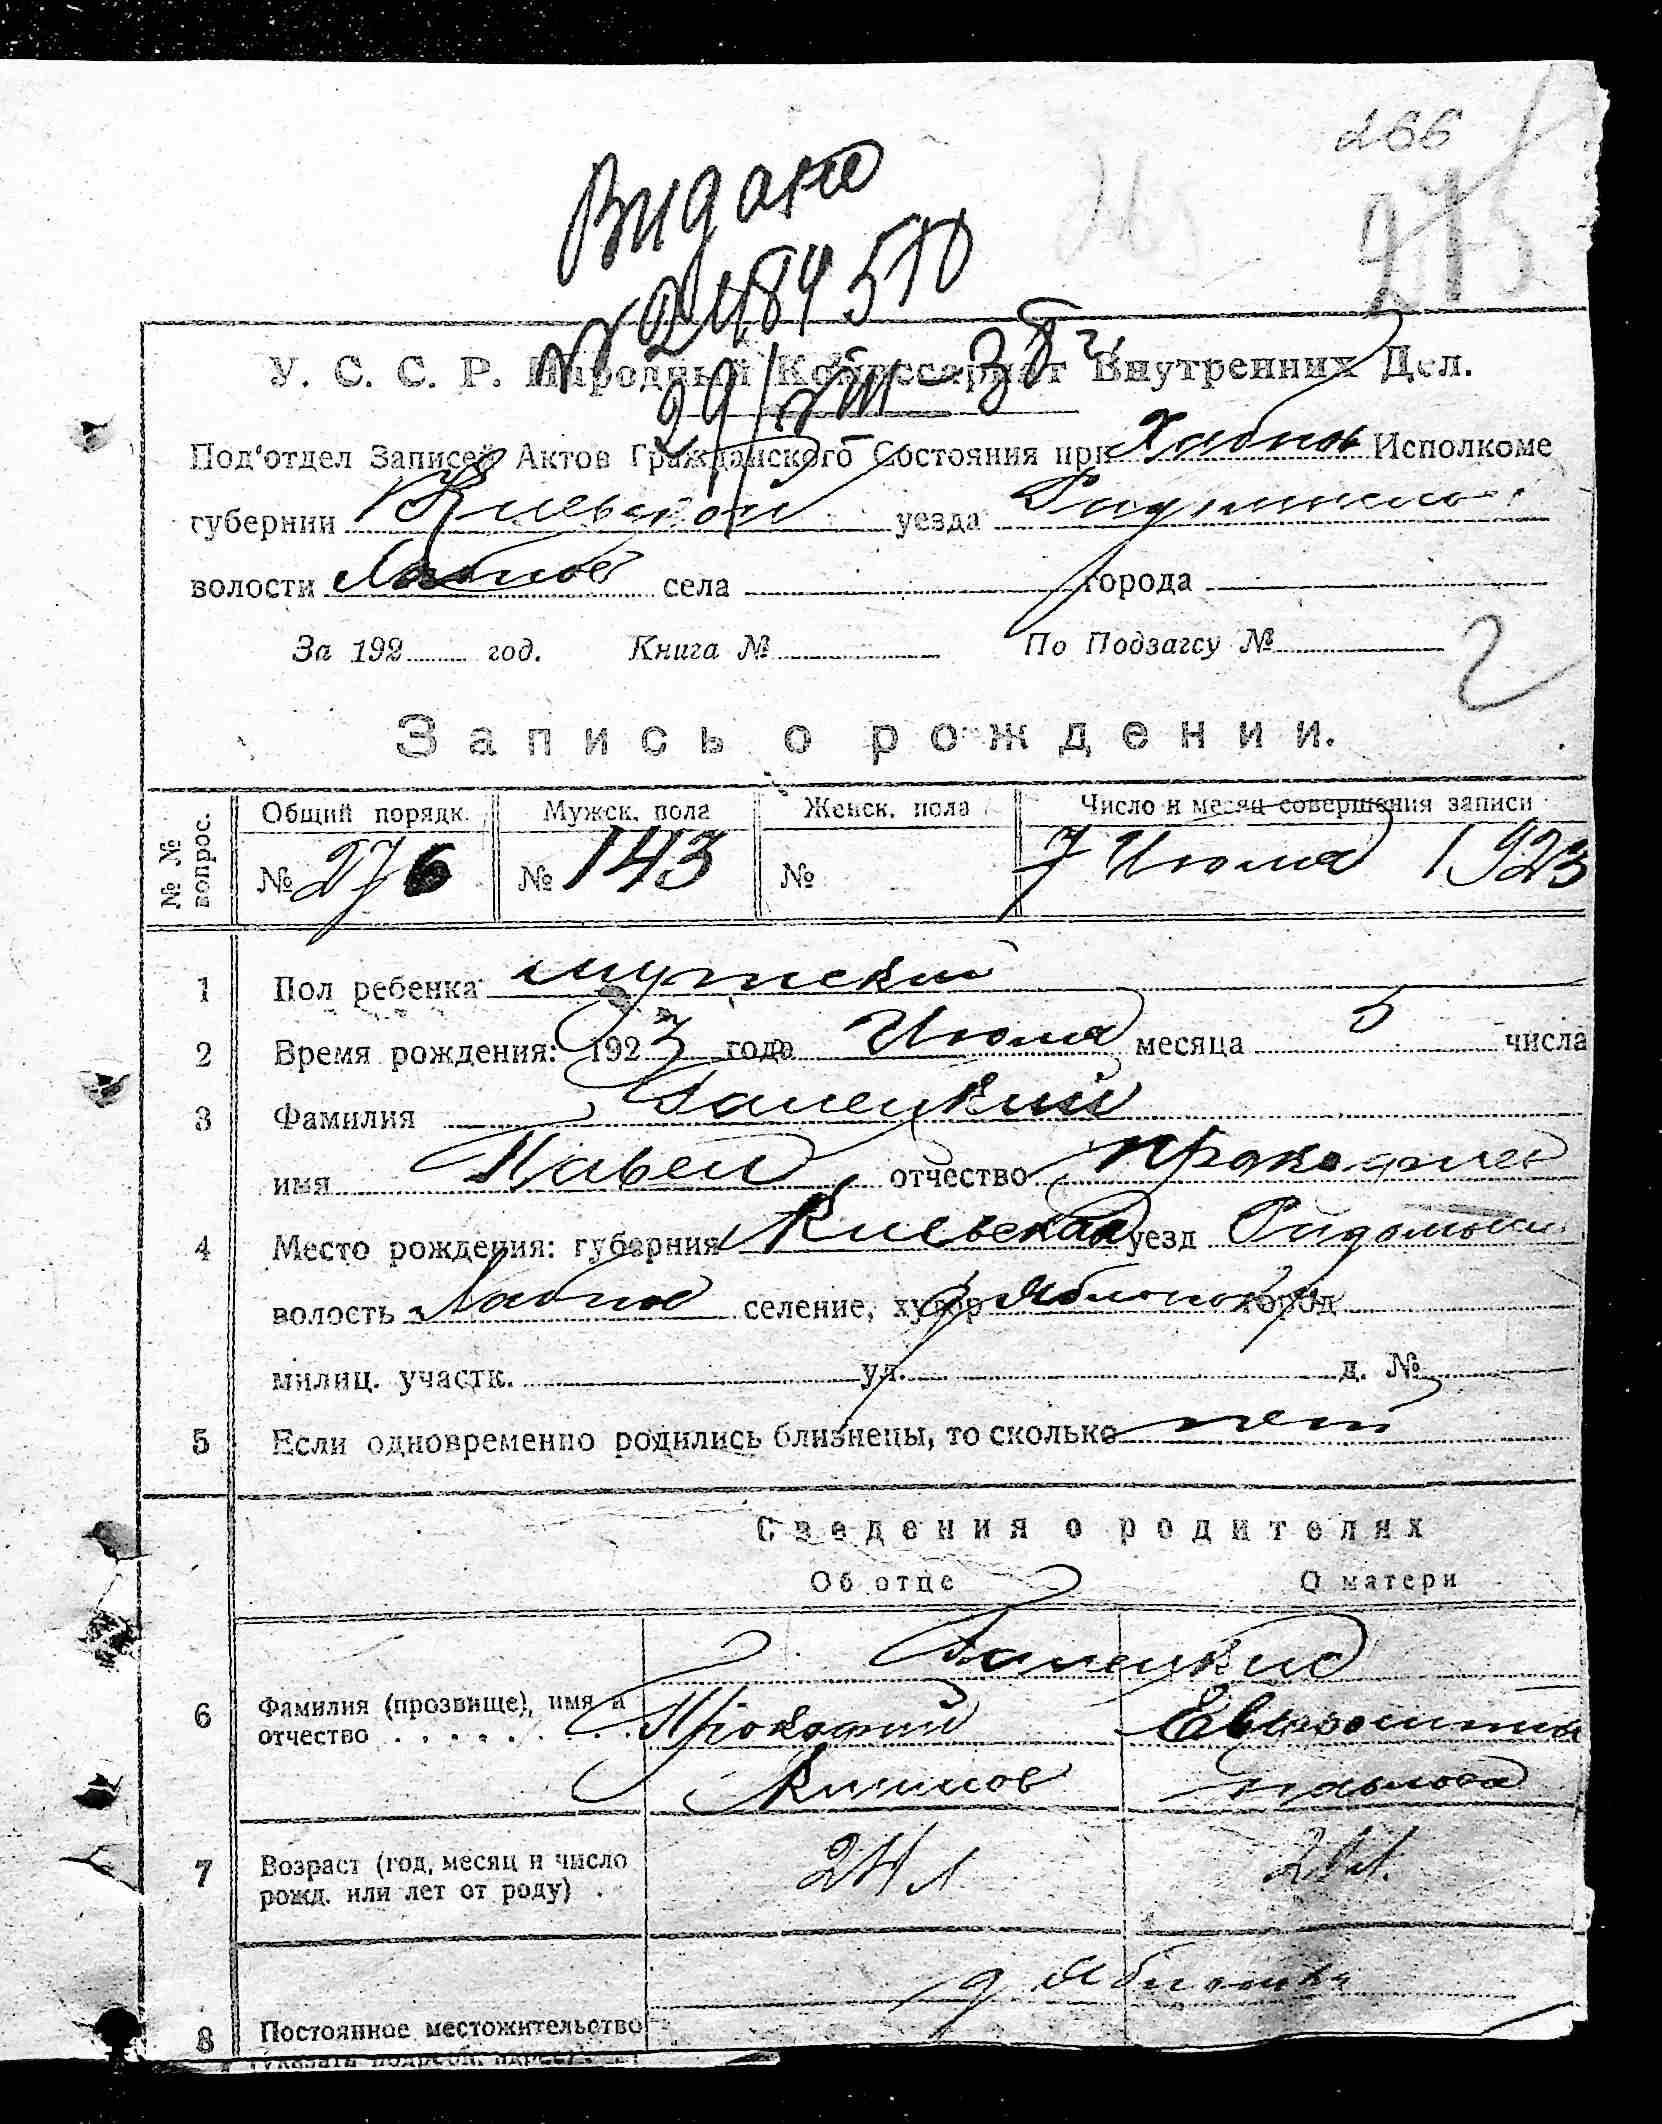 266
275
Видано
№ 2484510
29/VIII - 38 г.
У. С. С. Р. Народный Комиссариат Внутренних Дел.
Под'отдел Записей Актов Гражданского Состояния при Хабнов Исполкоме
губернии Киевской уезда
волости Хабное села города
За 192 год. Книга № По Подзагсу №
2
Запись о рождении.
№ № вопрос. Общий порядк. Мужск. пола Женск. пола Число и месяц совершения записи
№ 276 № 143 № 7 Июля 1923
1 Пол ребенка мужский
2 Время рождения: 1923 года Июля месяца 5 числа
3 Фамилия Галецкий
имя Павел отчество Прокофиев
4 Место рождения: губерния Киевская уезд Радомысл
волость Хабное селение, хутор д Яблонька город
милиц. участк. ул. д. №
5 Если одновременно родились близнецы, то сколько нет
Сведения о родителях
Об отце О матери
Галецкие
6 Фамилия (прозвище), имя и отчество Прокофий Евфросиния
Павлова
7 Возраст (год, месяц и число рожд. или лет от роду) 24 л
д Яблонька
8 Постоянное местожительство
(указать подробн. адрес)